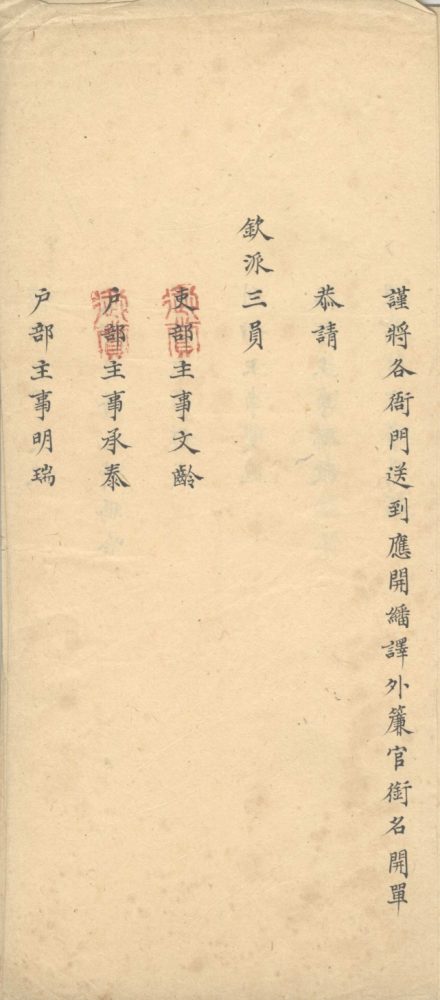 謹將各衙門送到應開繙譯外簾官銜名開單
恭請
欽派三員
吏部主事文齡
户部主事承泰
户部主事明瑞